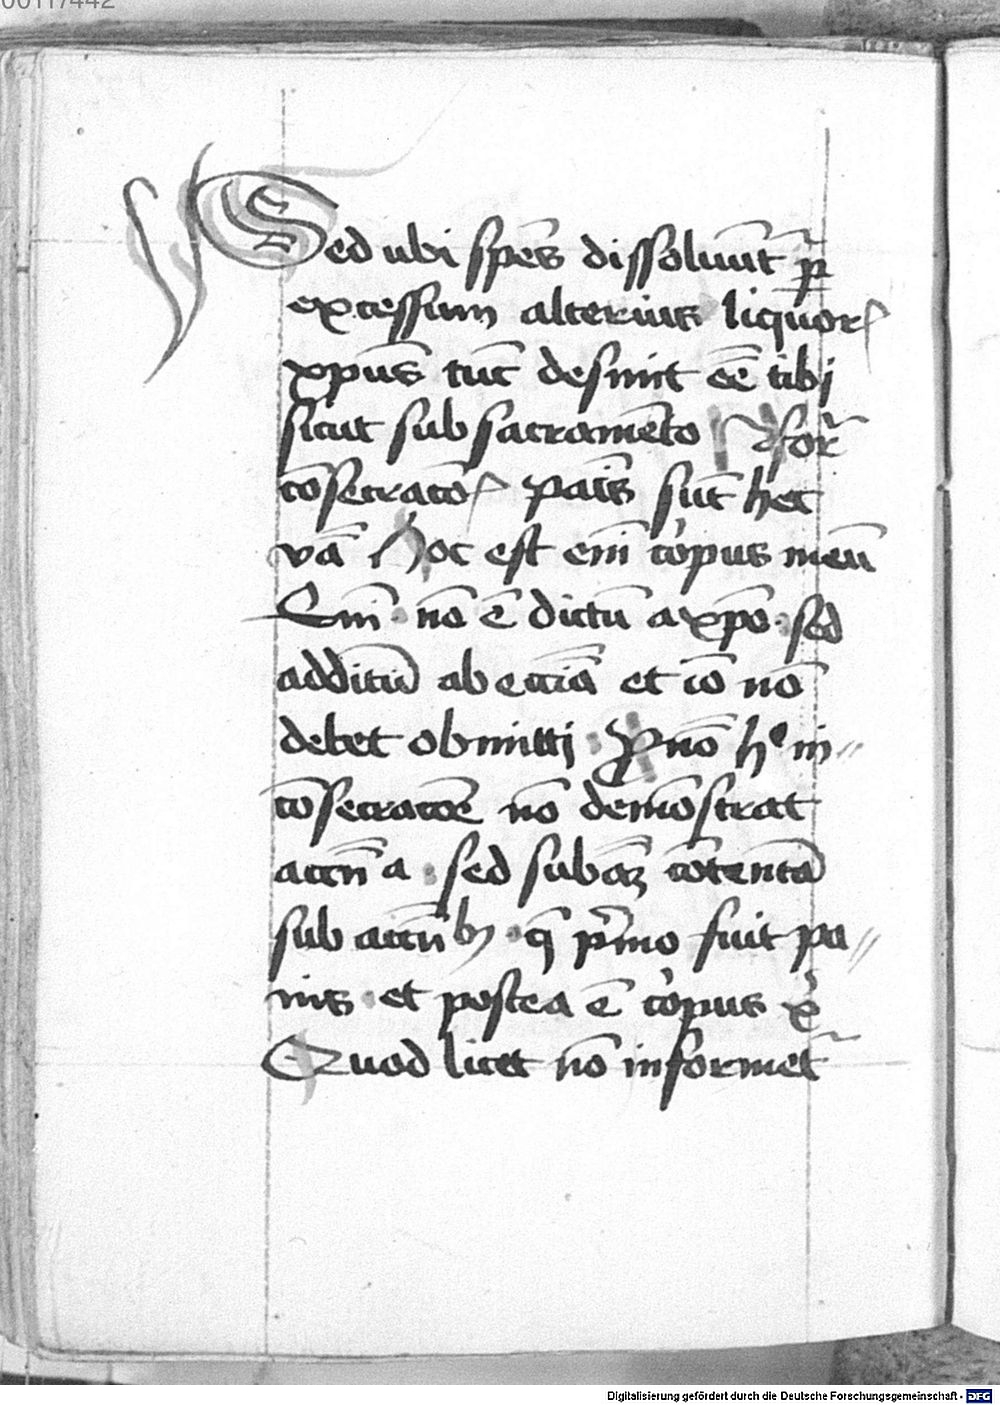 00117442
Sed ubi spēs dissoluūt᷑ p̲
excessum alterius liquorꝭ
xpūs tūc desinit eē̄ tibi
sicut sub sacramēto for᷑
cōsecratōꝭ pais̄ sūt hec
vā Hoc est eni̅ corpus meū
Eni̅ · nō ē dictū a xpō · sed
additū ab eccīa et iō nō
debet obmitti · Pnō hͦ in
cōsecratōe nō demōstrat
accn̄a · sed subāꝫ cōtentā
sub accn̄bꝫ · q̄ p̄mo fuit pa
nis · et postea ē corpus xᷓ
Quod licet nō informet᷑
Digitalisierung gefördert durch die Deutsche Forschungsgemeinschaft - DFG